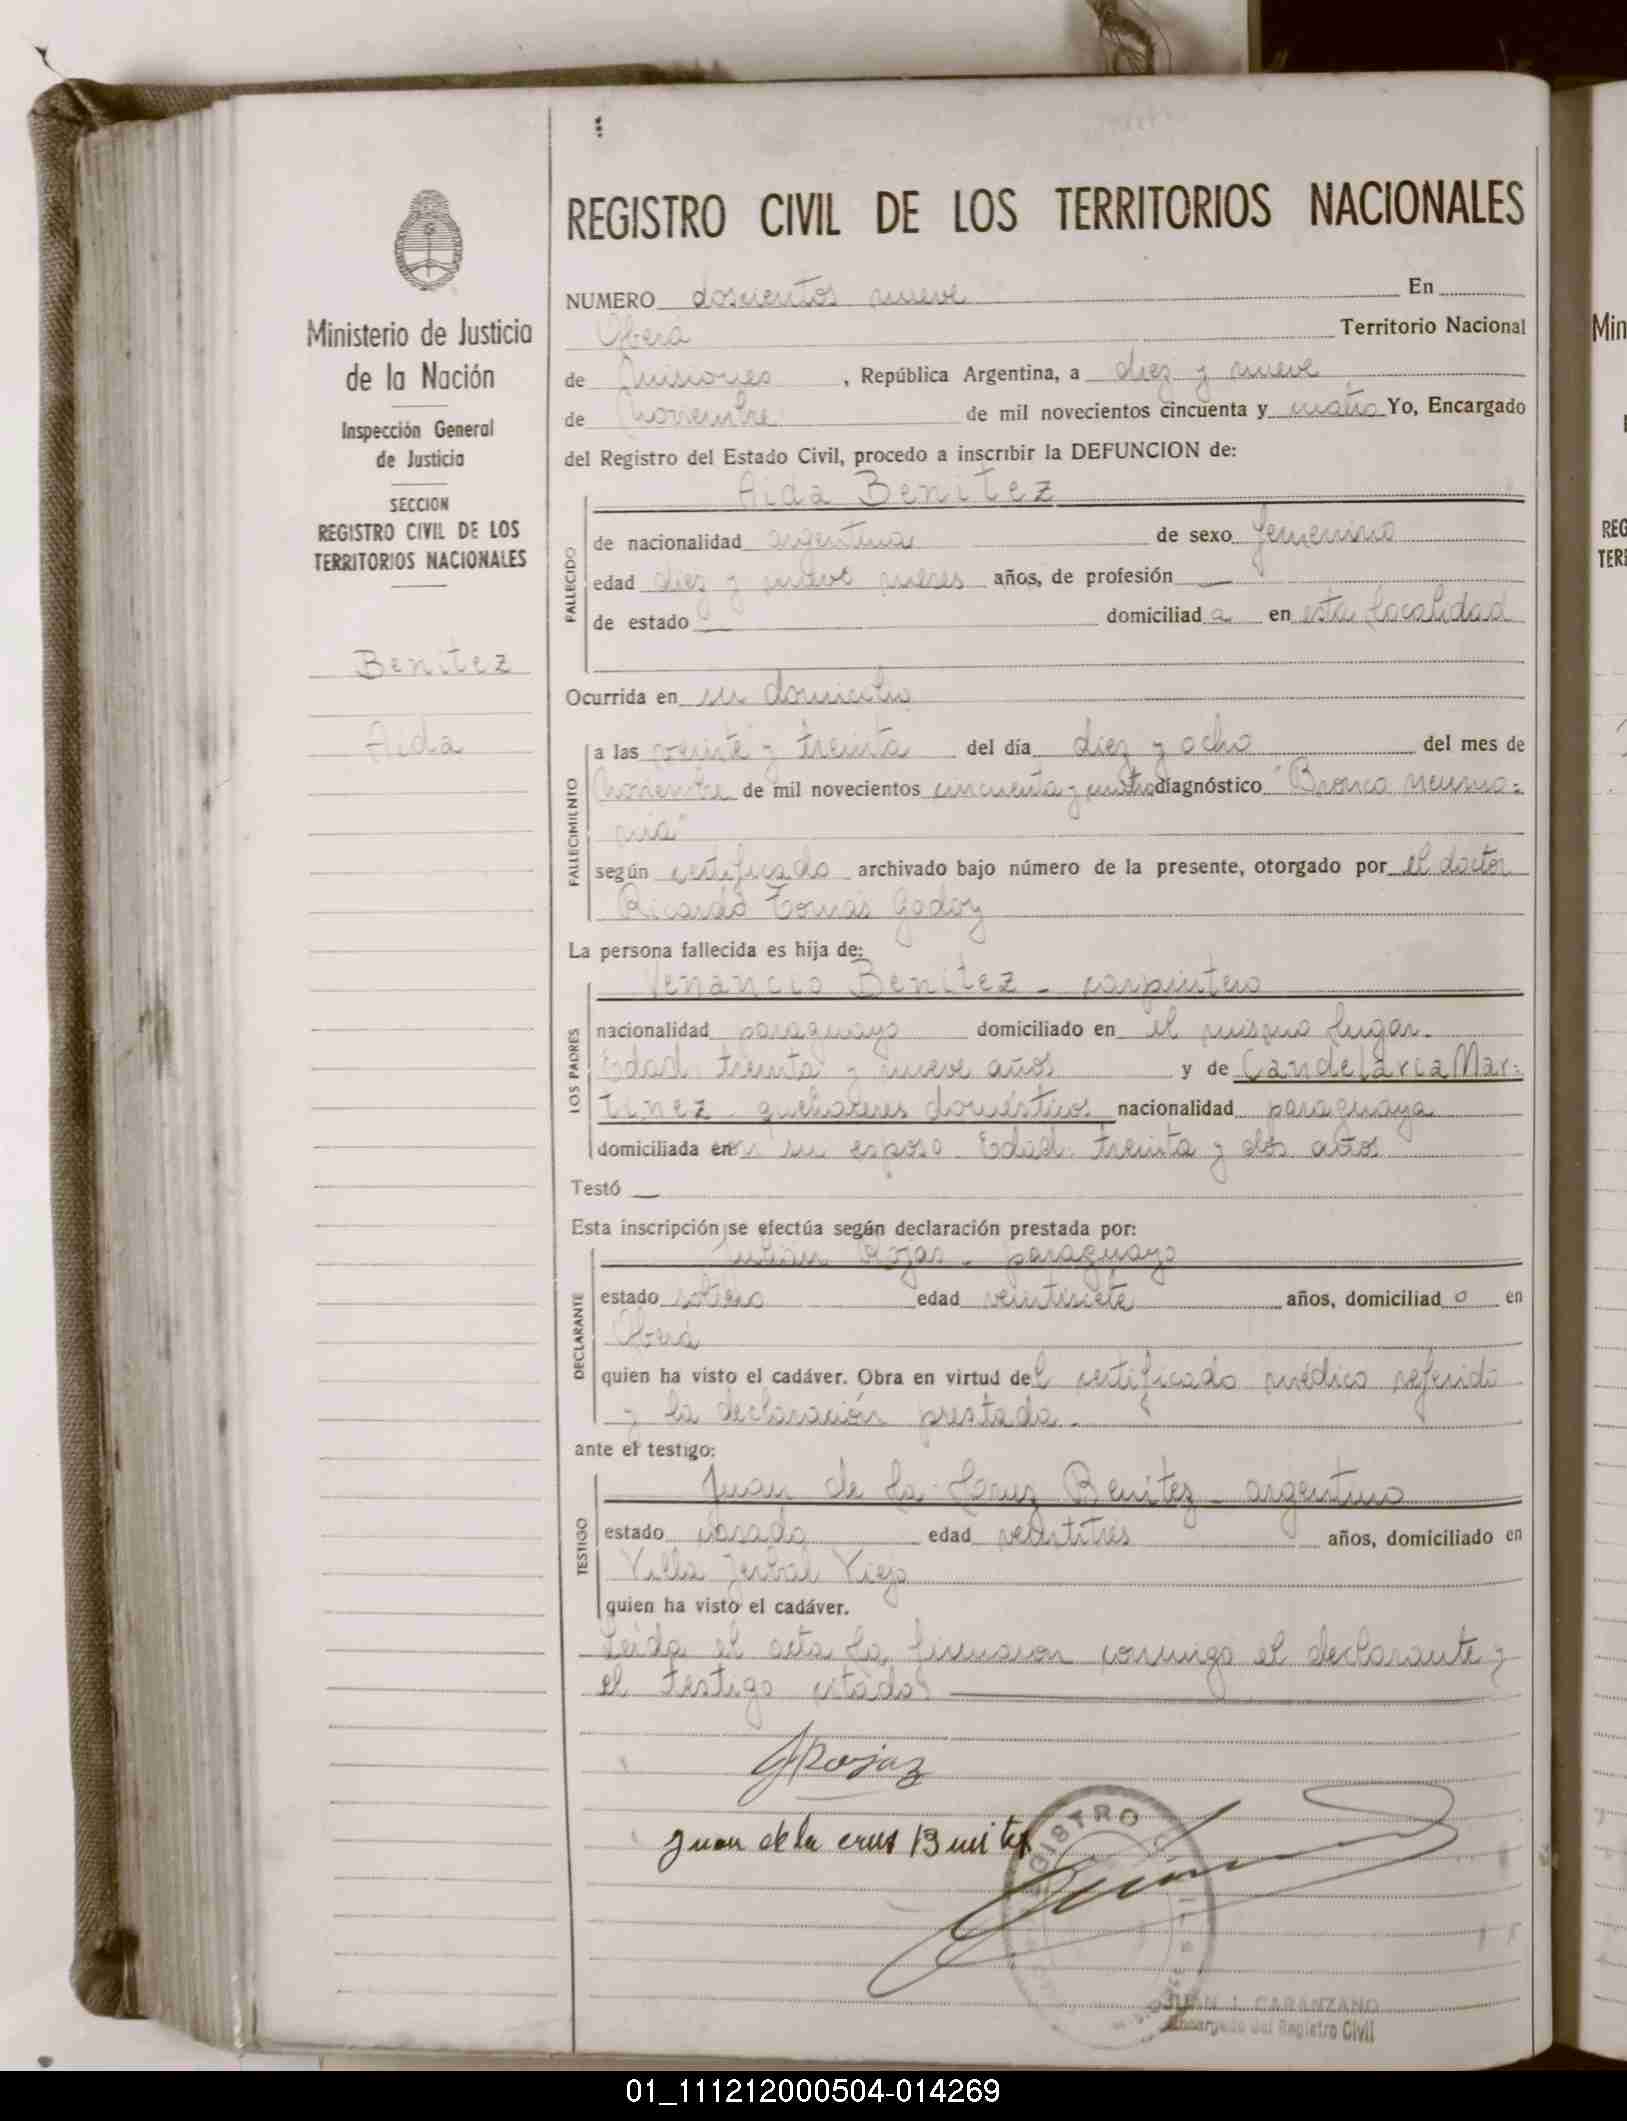 REGISTRO CIVIL DE LOS TERRITORIOS NACIONALES
Ministerio de Justicia
de la Nación
Inspección General
de Justicia
SECCION
REGISTRO CIVIL DE LOS
TERRITORIOS NACIONALES
Benitez
Aida
NUMERO doscientos nueve En
Oberá Territorio Nacional
de Misiones, República Argentina, a diez y nueve
de Noviembre de mil novecientos cincuenta y cuatro Yo, Encargado
del Registro del Estado Civil, procedo a inscribir la DEFUNCION de:
Aida Benitez
FALLECIDO
de nacionalidad argentina de sexo femenino
edad diez y nueve meses años, de profesión —
de estado — domiciliada en esta localidad
Ocurrida en su domicilio
FALLECIMIENTO
a las veinte y treinta del día diez y ocho del mes de
Noviembre de mil novecientos cincuenta y cuatro diagnóstico "Bronco neumo=
nia"
según certificado archivado bajo número de la presente, otorgado por el doctor
Ricardo Tomás Godoy
La persona fallecida es hija de:
LOS PADRES
Venancio Benitez - carpintero
nacionalidad paraguayo domiciliado en el mismo lugar.
Edad: treinta y nueve años y de Candelaria Mar=
tinez - quehaceres domésticos nacionalidad paraguaya
domiciliada en su esposo. Edad: treinta y dos años
Testó —
Esta inscripción se efectúa según declaración prestada por:
DECLARANTE
Julián Rojas - paraguayo
estado soltero edad veintisiete años, domiciliado en
Oberá
quien ha visto el cadáver. Obra en virtud del certificado médico referido
y la declaración prestada.
ante el testigo:
TESTIGO
Juan de la Cruz Benitez - argentino
estado casado edad veintitrés años, domiciliado en
Villa Yerbal Viejo
quien ha visto el cadáver.
Leida el acta la firmaron conmigo el declarante y
el testigo citados
JRojaz
Juan de la crus Benites
REGISTRO
JUAN I. CARANZANO
Encargado del Registro Civil
Min
REG
TERI
01_111212000504-014269